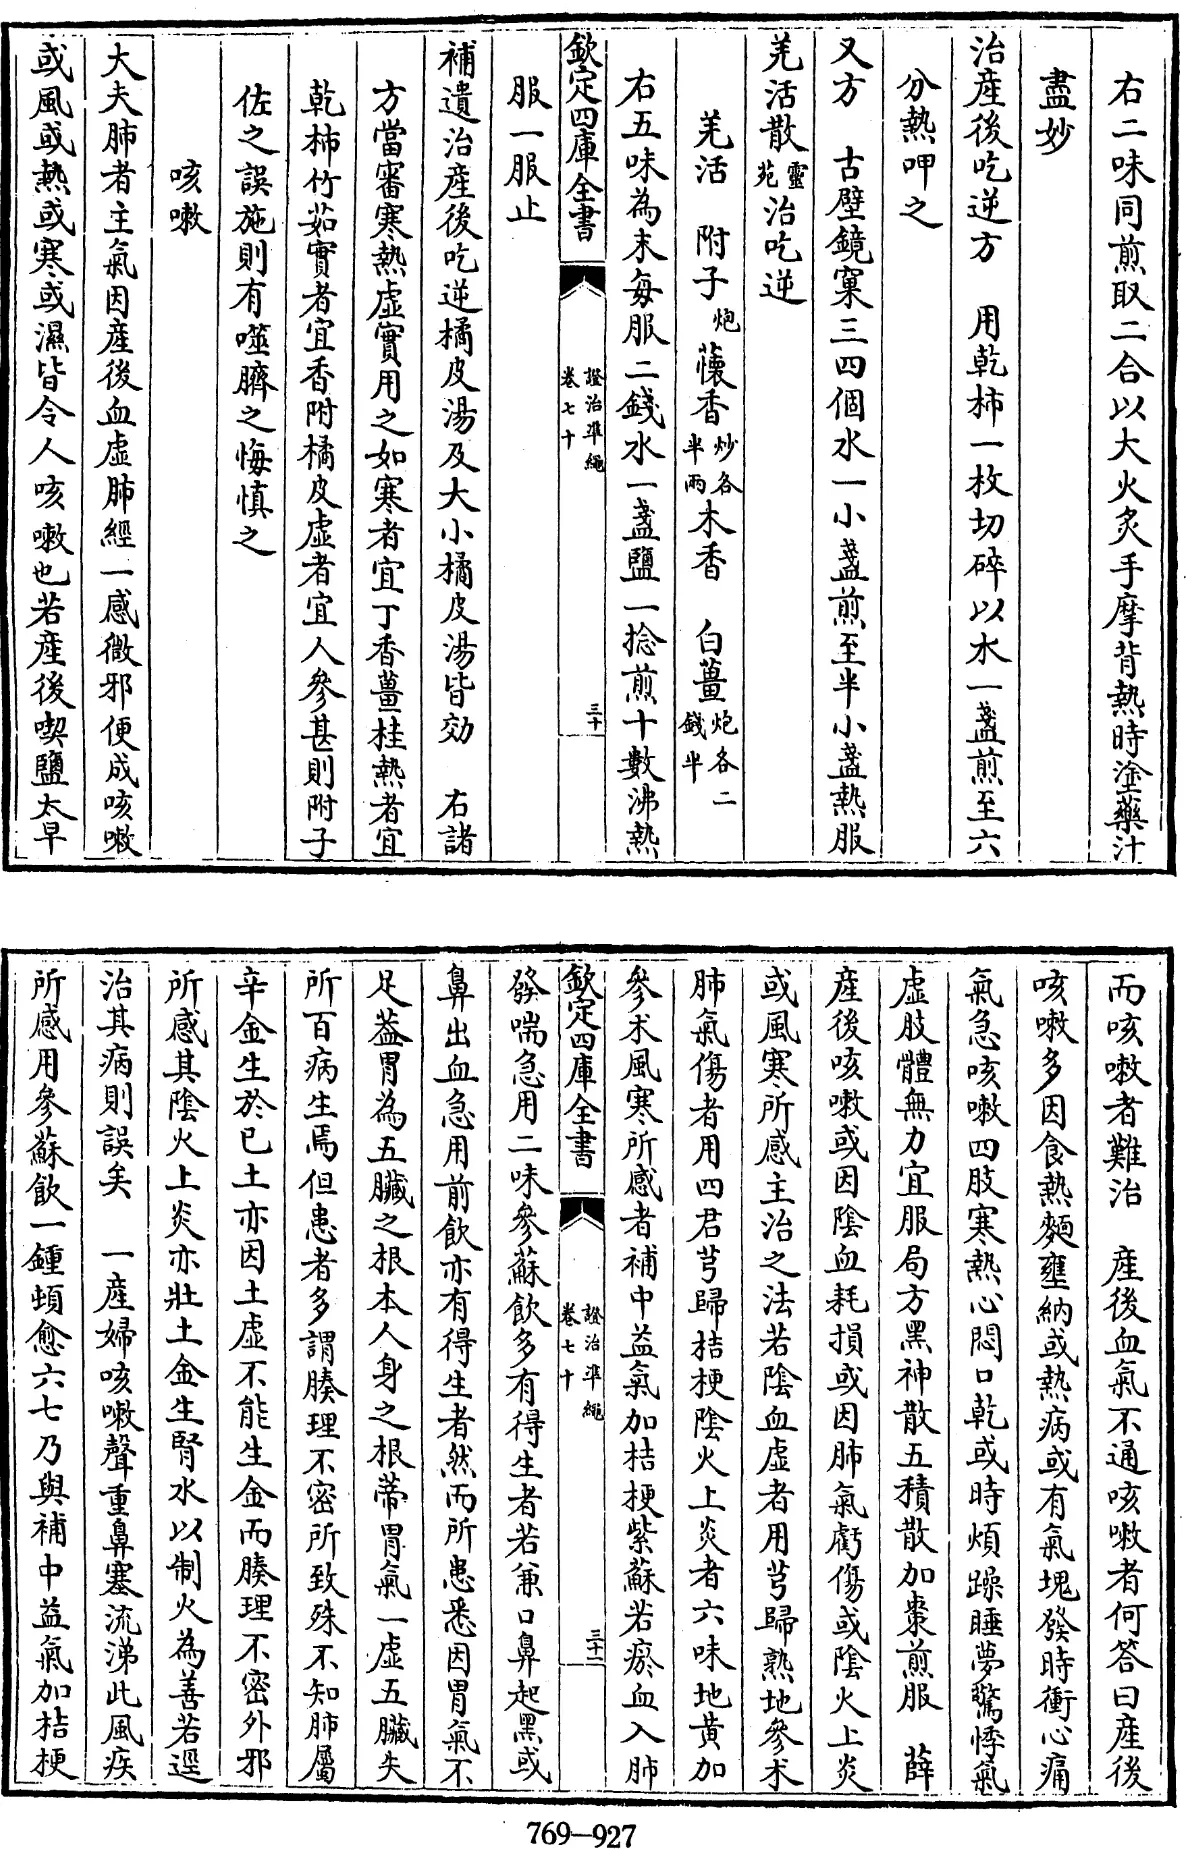 右二味同煎取二合以大火炙手摩背熱時塗藥汁
盡妙
治產後吃逆方　用乾柿一枚切碎以水一盞煎至六
分熱呷之
又方　古壁鏡窠三四個水一小盞煎至半小盞熱服
羌活散靈苑治吃逆
羌活　附子炮　蘹香炒各半兩　木香　白薑炮各二錢半
右五味為末每服二錢水一盞鹽一捻煎十數沸熱
欽定四庫全書　證治準繩卷七十　三十
服一服止
補遺治產後吃逆橘皮湯及大小橘皮湯皆効　右諸
方當審寒熱虛實用之如寒者宜丁香薑桂熱者宜
乾柿竹茹實者宜香附橘皮虛者宜人參甚則附子
佐之誤施則有噬臍之悔慎之
咳嗽
大夫肺者主氣因產後血虛肺經一感微邪便成咳嗽
或風或熱或寒或濕皆令人咳嗽也若產後喫鹽太早
而咳嗽者難治　產後血氣不通咳嗽者何答曰產後
咳嗽多因食熱麵壅納或熱病或有氣塊發時衝心痛
氣急咳嗽四肢寒熱心悶口乾或時煩躁睡夢驚悸氣
虛肢體無力宜服局方黑神散五積散加棗煎服　薛
產後咳嗽或因陰血耗損或因肺氣虧傷或陰火上炎
或風寒所感主治之法若陰血虛者用芎歸熟地參术
肺氣傷者用四君芎歸桔梗陰火上炎者六味地黃加
參术風寒所感者補中益氣加桔梗紫蘇若瘀血入肺
欽定四庫全書　證治準繩卷七十　三十一
發喘急用二味參蘇飲多有得生者若兼口鼻起黑或
鼻出血急用前飲亦有得生者然而所患悉因胃氣不
足葢胃為五臟之根本人身之根蒂胃氣一虛五臟失
所百病生焉但患者多謂腠理不密所致殊不知肺屬
辛金生於已土亦因土虛不能生金而腠理不密外邪
所感其陰火上炎亦壯土金生腎水以制火為善若逕
治其病則誤矣　一產婦咳嗽聲重鼻塞流涕此風疾
所感用參蘇飲一鍾頓愈六七乃與補中益氣加桔梗
769—927